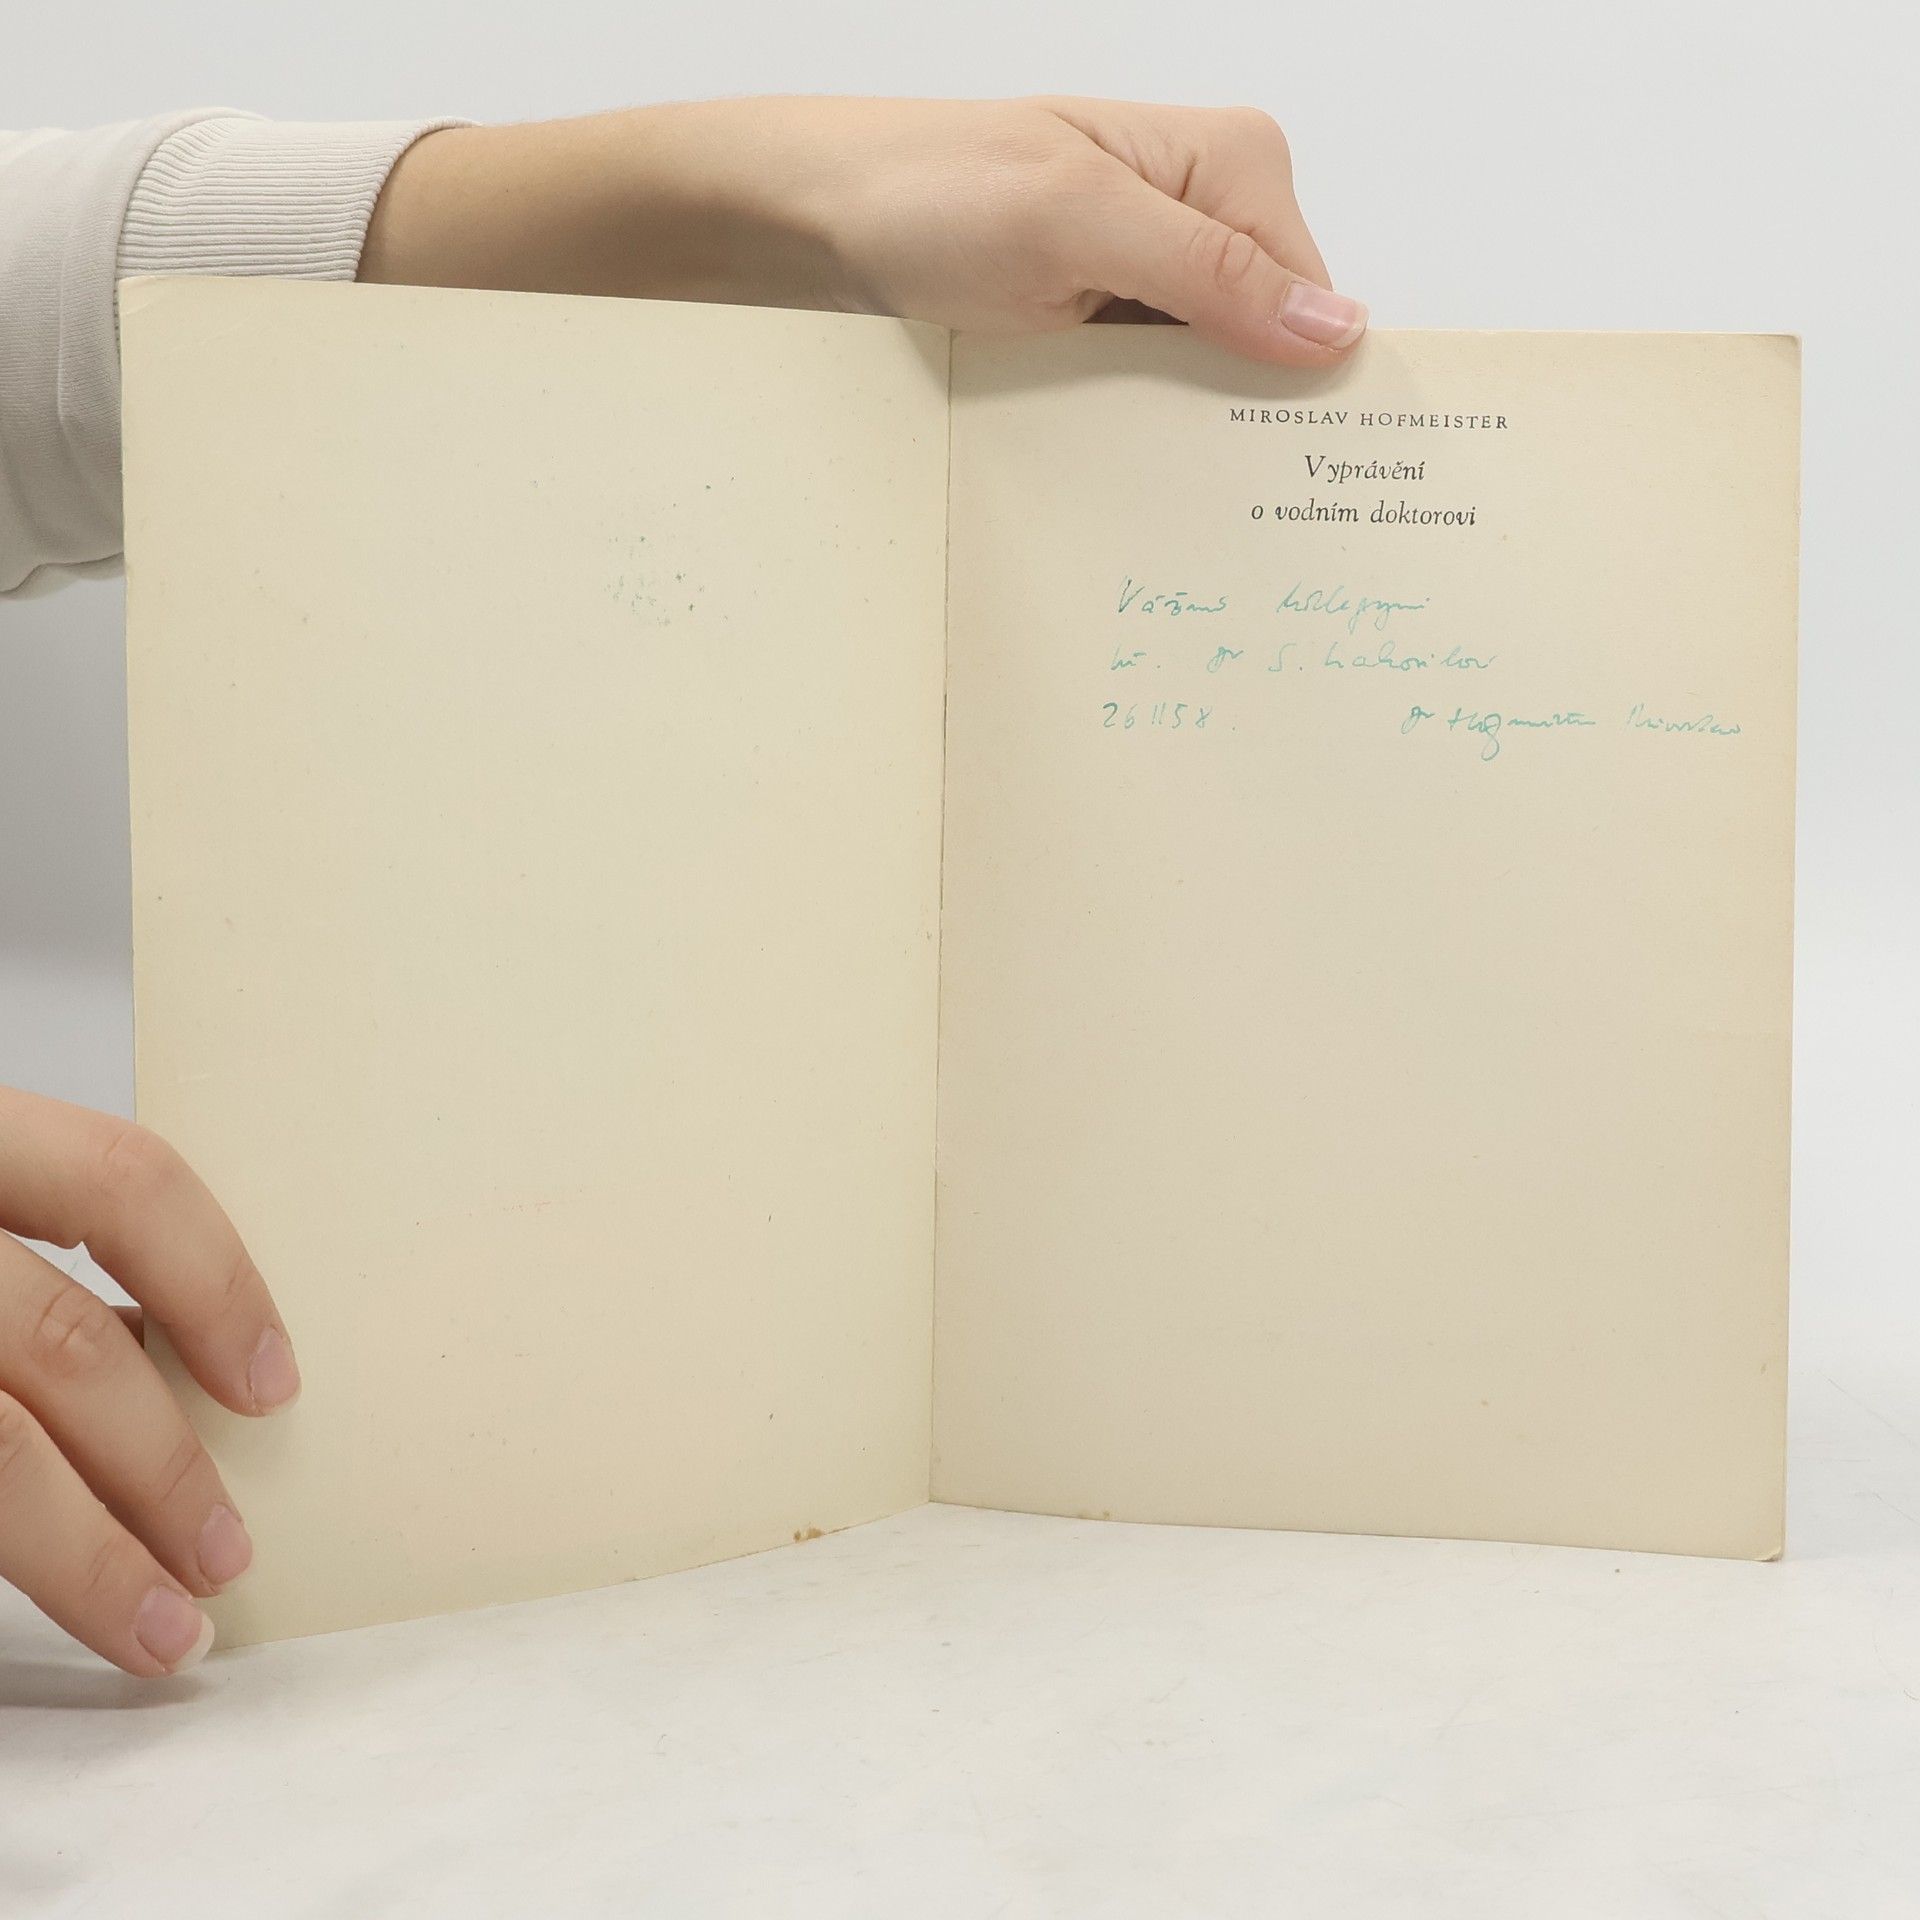 MIROSLAV HOFMEISTER
Vyprávění
o vodním doktorovi
Vážené kolegyni
dr S.
26 II 58. dr Hofmeister Miroslav